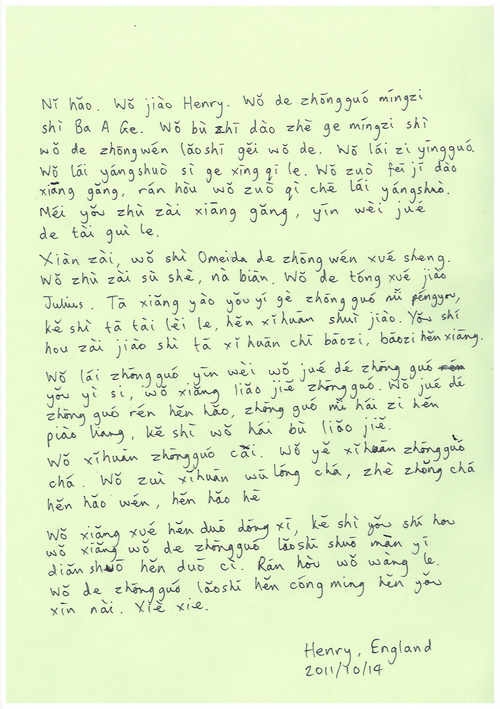 Nǐ hǎo. Wǒ jiào Henry. Wǒ de zhōngguó míngzi
shì Ba A Ge. Wǒ bù zhī dào zhè ge míngzi shì
wǒ de zhōngwén lǎoshī gěi wǒ de. Wǒ lái zì yīngguó.
Wǒ lái yángshuò sì ge xīng qī le. Wǒ zuò fēi jī dào
xiāng gǎng, rán hòu wǒ zuò qì chē lái yángshuò.
Méi yǒu zhù zài xiāng gǎng, yīn wèi jué
de tài guì le.
Xiàn zài, wǒ shì Omeida de zhōng wén xué sheng.
Wǒ zhù zài sù shè, nà biān. Wǒ de tóng xué jiào
Julius. Tā xiǎng yào yǒu yí gè zhōng guó nǚ péngyou,
kě shì tā tài lèi le, hěn xǐhuān shuì jiào. Yǒu shí
hou zài jiào shì tā xǐ huān chī bāozi, bāozi hěn xiāng.
Wǒ lái zhōngguó yīn wèi wǒ jué dé zhōng guó
yǒu yì si, wǒ xiǎng liǎo jiě zhōngguó. Wǒ jué dé
zhōng guó rén hěn hǎo, zhōng guó nǚ hái zi hěn
piào liang, kě shì wǒ hái bù liǎo jiě.
Wǒ xǐhuān zhōngguó cài. Wǒ yě xǐhuān zhōngguó
chá. Wǒ zuì xǐhuān wū lóng chá, zhè zhǒng chá
hěn hǎo wén, hěn hǎo hē
Wǒ xiǎng xué hěn duō dōng xī, kě shì yǒu shí hou
wǒ xiǎng wǒ de zhōngguó lǎoshī shuō màn yī
diǎn shuō hěn duō cì. Rán hòu wǒ wàng le.
Wǒ de zhōngguó lǎoshī hěn cóng ming hěn yǒu
xīn nài. Xiè xie.
Henry, England
2011/10/14